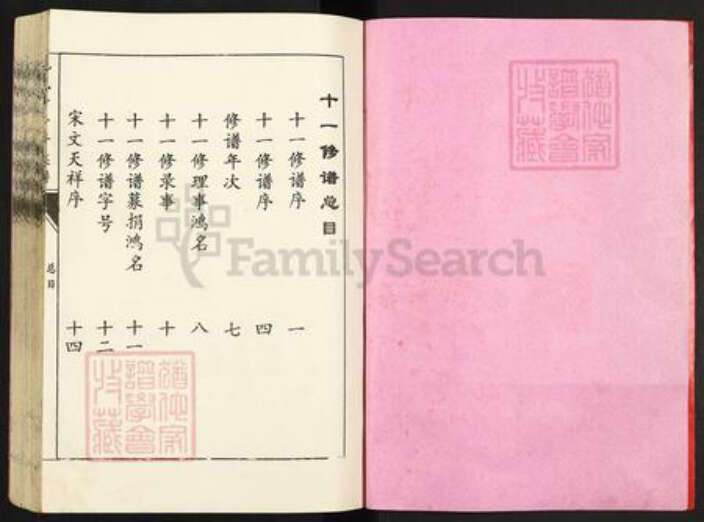 十一修谱总目
十一修谱序 一
十一修谱序 四
修谱年次 七
十一修理事鸿名 八
十一修录事 十
十一修谱募捐鸿名 十一
十一修谱字号 十二
宋文天祥序 十四
总目
FamilySearch